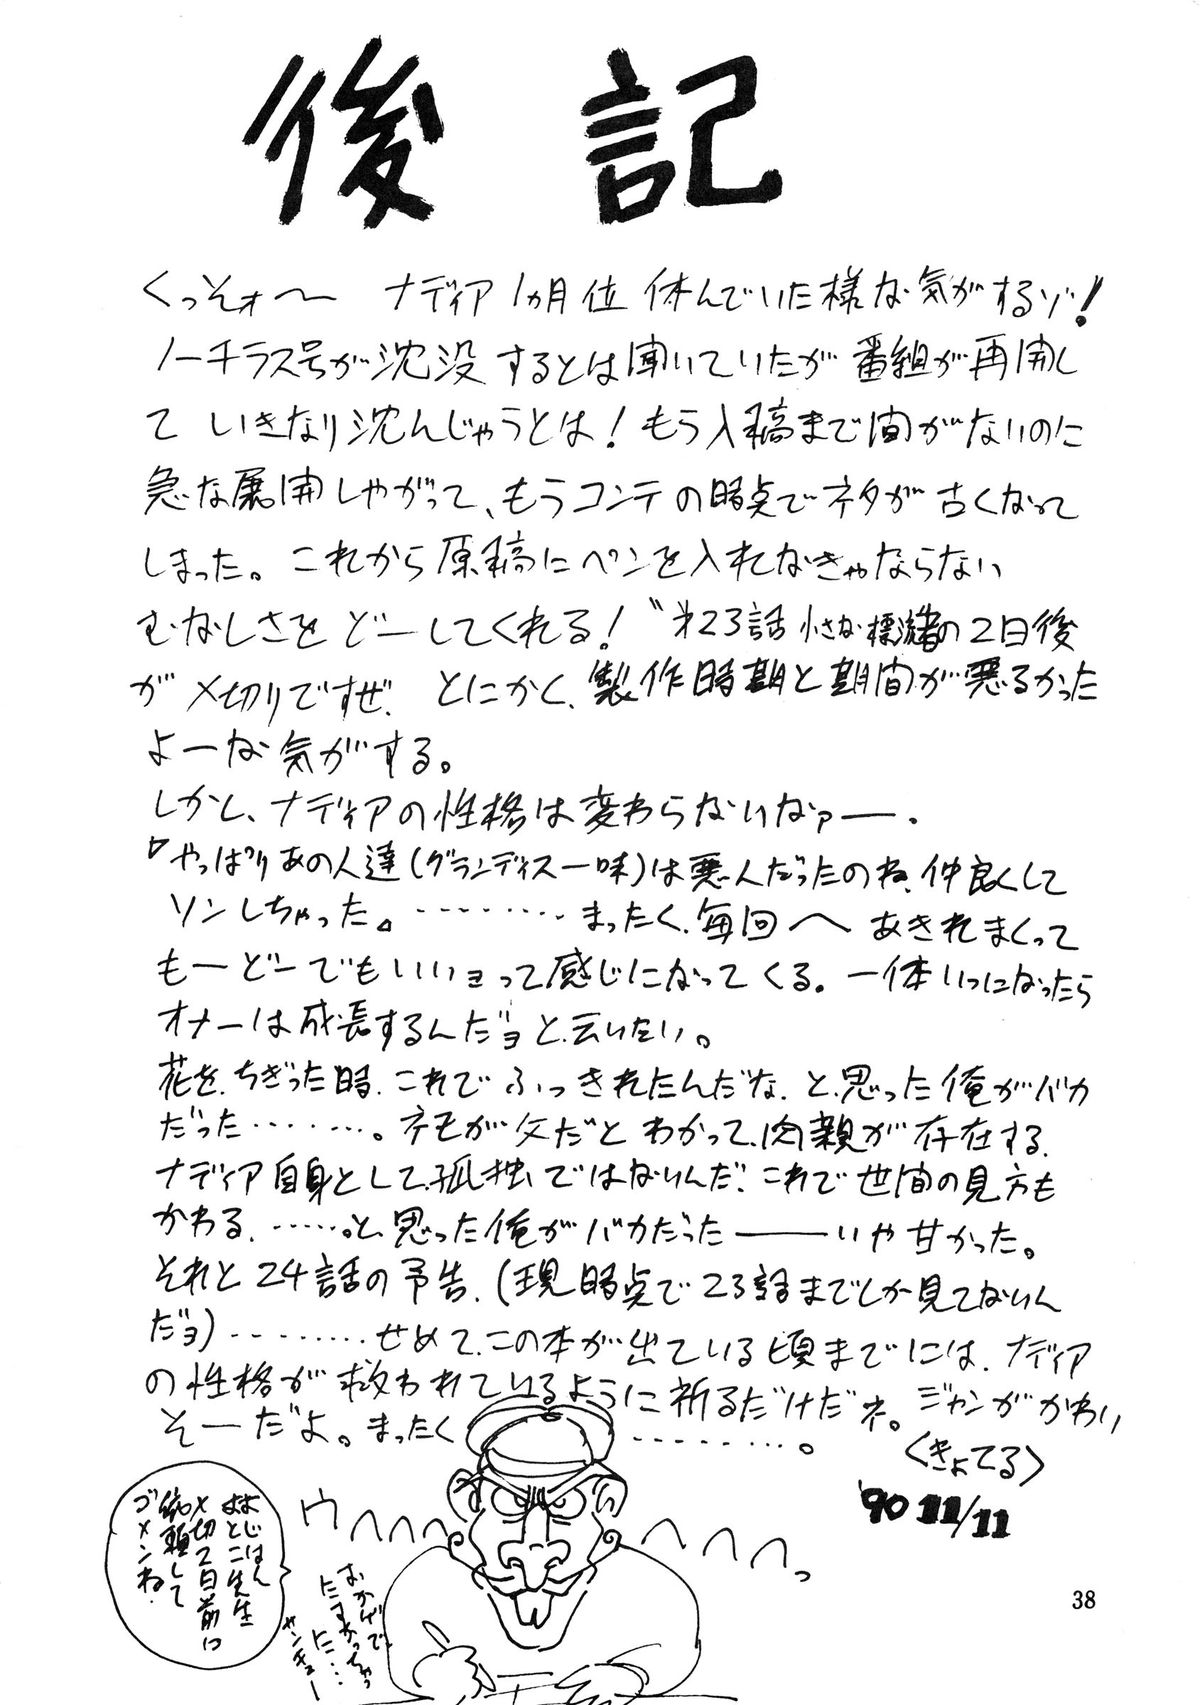 後記
くっそォ〜 ナディア1ヵ月位休んでいた様な気がするゾ!
ノーチラス号が沈没するとは聞いていたが番組が再開し
ていきなり沈んじゃうとは!もう入稿まで間がないのに
急な展開しやがって、もうコンテの時点でネタが古くなって
しまった。これから原稿にペンを入れなきゃならない
むなしさをどーしてくれる!〝第23話 小さな漂流者の2日後
が〆切りですぜ.とにかく、製作時期と期間が悪るかった
よーな気がする。
しかし、ナディアの性格は変わらないなァー.
「やっぱりあの人達(グランディス一味)は悪人だったのね、仲良くして
ソンしちゃった。」………まったく、毎回〜あきれまくって
もーどーでもいいョって感じになってくる。一体いつになったら
オナーは成長するんだョと、云いたい。
花を、ちぎった時、これでふっきれたんだな、と、思った俺がバカ
だった………。ネモが父だとわかって、肉親が存在する、
ナディア自身として、孤独ではないんだ.これで世間の見方も
かわる、……。と、思った俺がバカだった――いや甘かった。
それと24話の予告、(現時点で23話までしか見てないん
だョ)………せめて、この本が出ている頃までには、ナディア
の性格が救われているように祈るだけだネ。ジャンがかわい
そーだよ。まったく………。
〈きよてる〉
'90 11/11
よじはん
よとこ先生
〆切2日前に
依頼して
ゴメンね.
ウヘヘヘヘ
ヘヘヘヘっ
おかげで、
たすかっちゃっ
た…
サンキュー
38